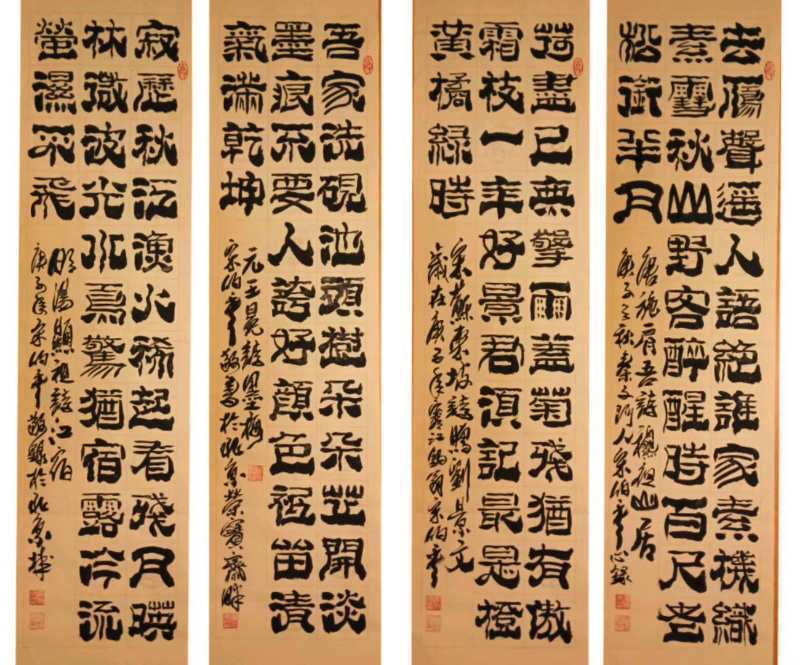 去鴈聲遥人語絕誰家素機織
素雪秋山野客醉醒時百尺老
松銜半月
唐施肩吾詩龝夜山居
庚子之秋
荷盡已無擎雨蓋菊殘猶有傲
霜枝一年好景君須記最是橙
黄橘緑時
宋蘇東坡詩贈劉景文
歲在庚子年寒江宋伯平
吾家洗硯池頭樹朵朵花開淡
墨痕不要人誇好顔色祗留清
氣滿乾坤
元王冕詩墨梅
宋伯平敬書於北京榮寶齋畔
寂歷秋江漁火稀起看殘月映
林微波光水鳥驚猶宿露冷流
螢濕不飛
明湯顯祖詩江宿
庚子年宋伯平敬錄於北京